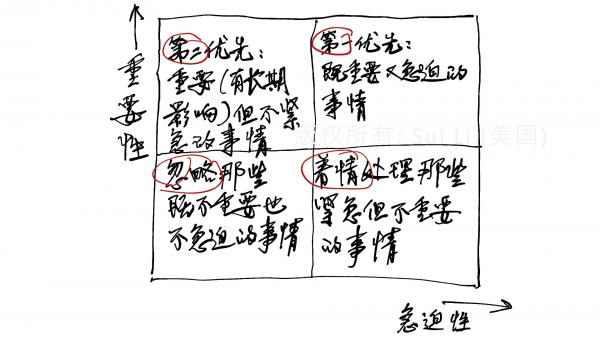 重要性
第二优先:
重要(有长期
影响)但不紧
急的事情
第一优先:
既重要又急迫的
事情
版权所有: Sui Li (美国)
忽略那些
既不重要也
不急迫的事情
着情处理那些
紧急但不重要
的事情
急迫性